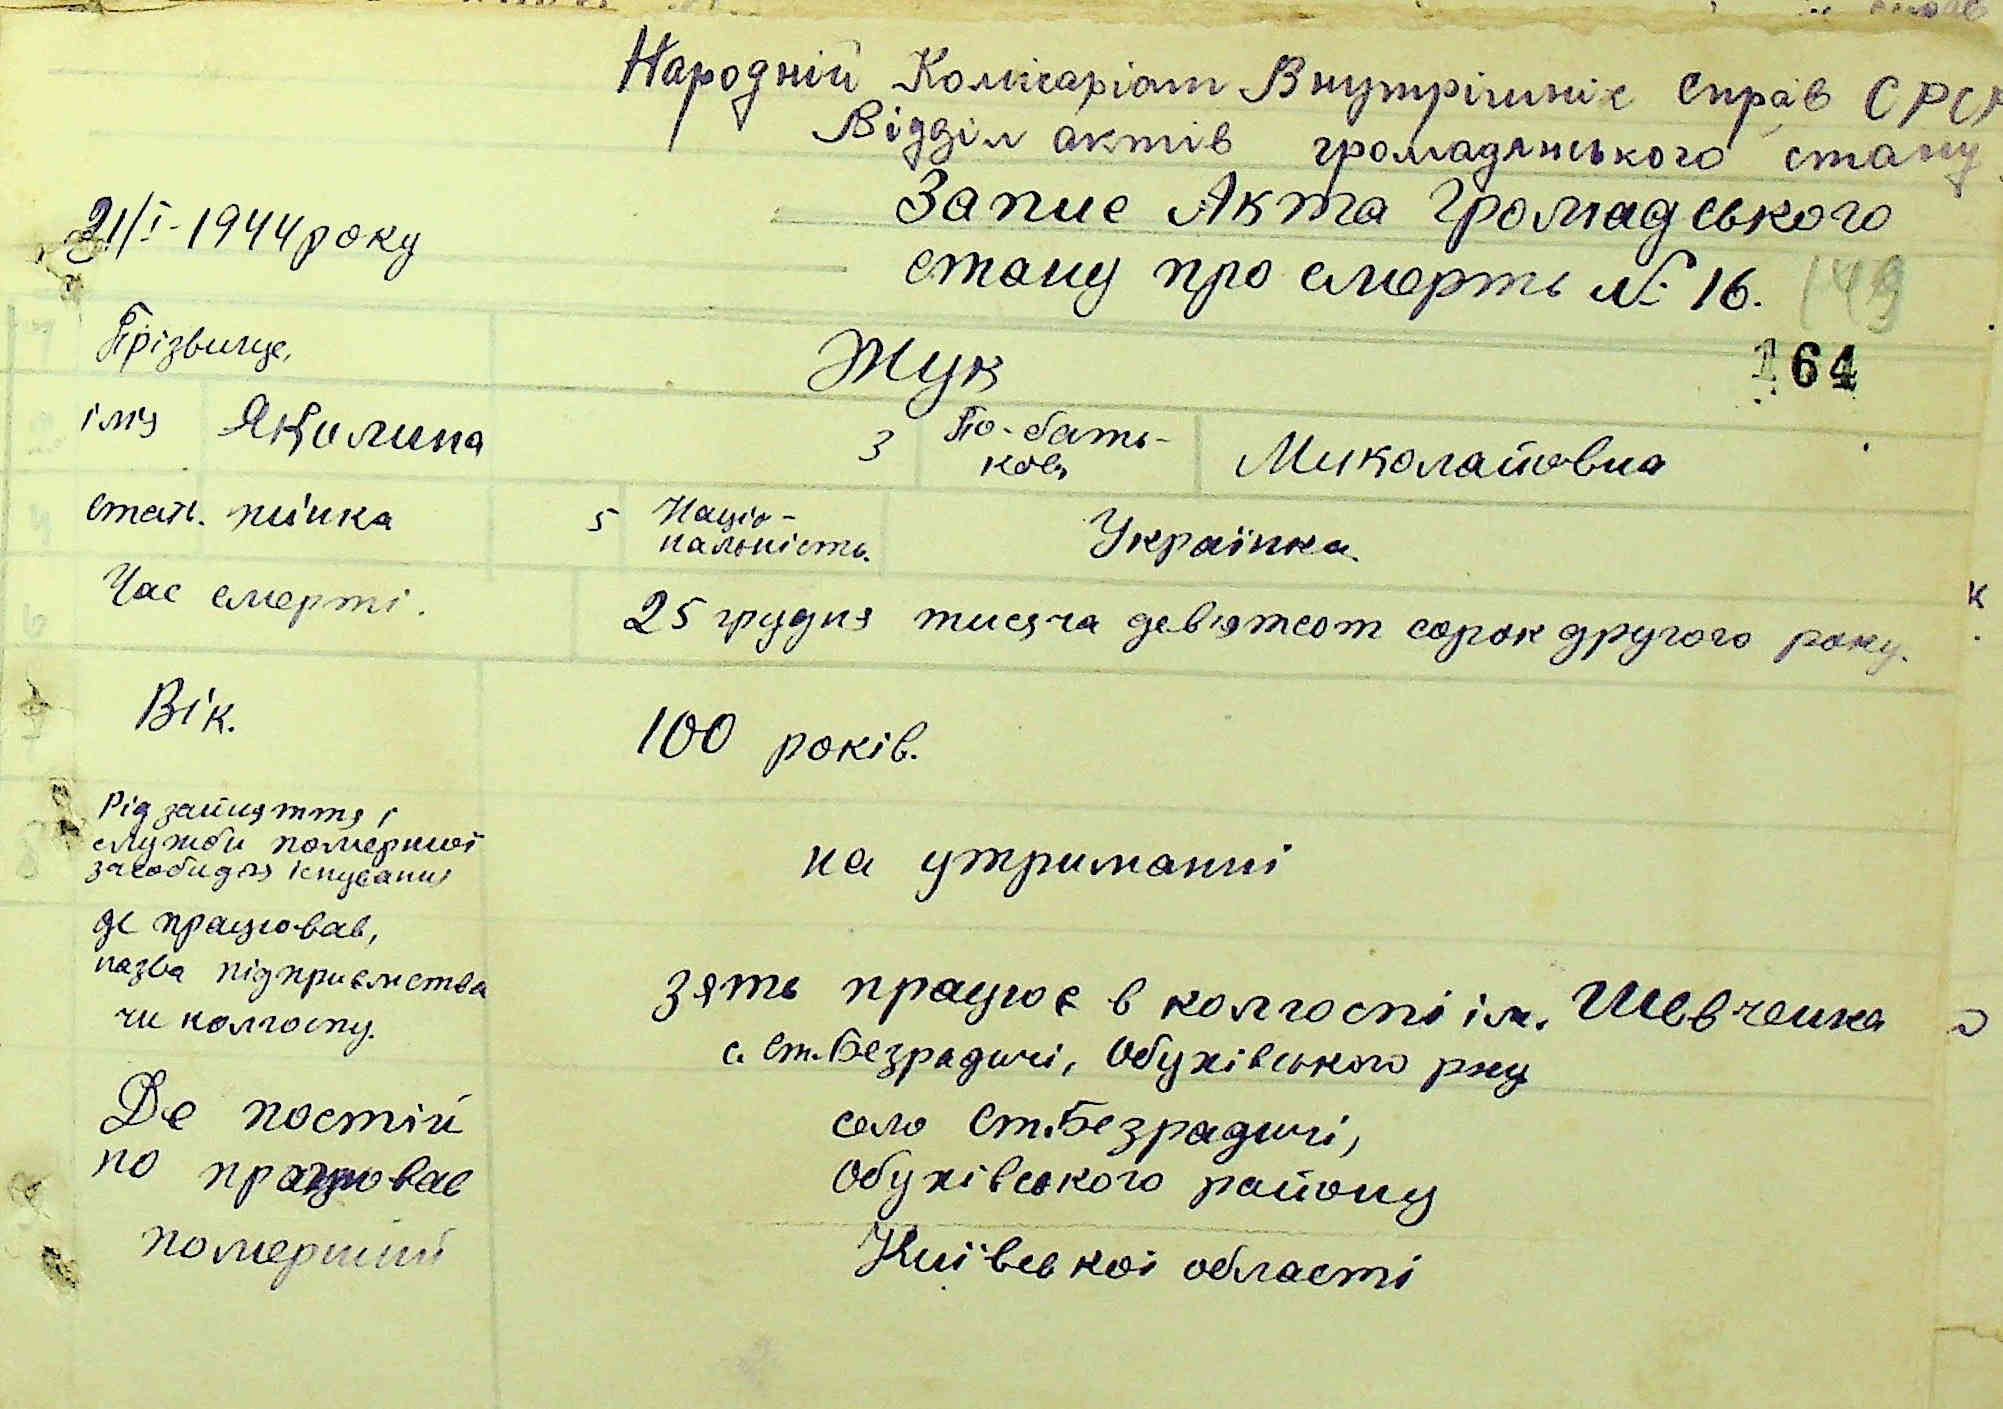 Народній Комісаріат Внутрішніх Справ СРСР
Відділ актів громадянського стану
21/I-1944 року
Запис Акта Громадського
стану про смерть № 16.
149
164
Прізвище,
Жук
імя
Якилина
3
По-бать-
кові
Миколаїовна
стать.
жінка
5
Націо-
нальність.
Українка
Час смерті.
25 грудня тисяча девятсот сорок другого року.
к
Вік.
100 років.
Рід зайняття і
служби помершої
засоби для існування
на утриманні
де працював,
назва підприємства
чи колгоспу.
зять працює в колгоспі ім. Шевченка
с. Ст.Безрадичі, Обухівського р-ну
Де постій
но працював
померший
село Ст.Безрадичі,
Обухівського району
Київської області